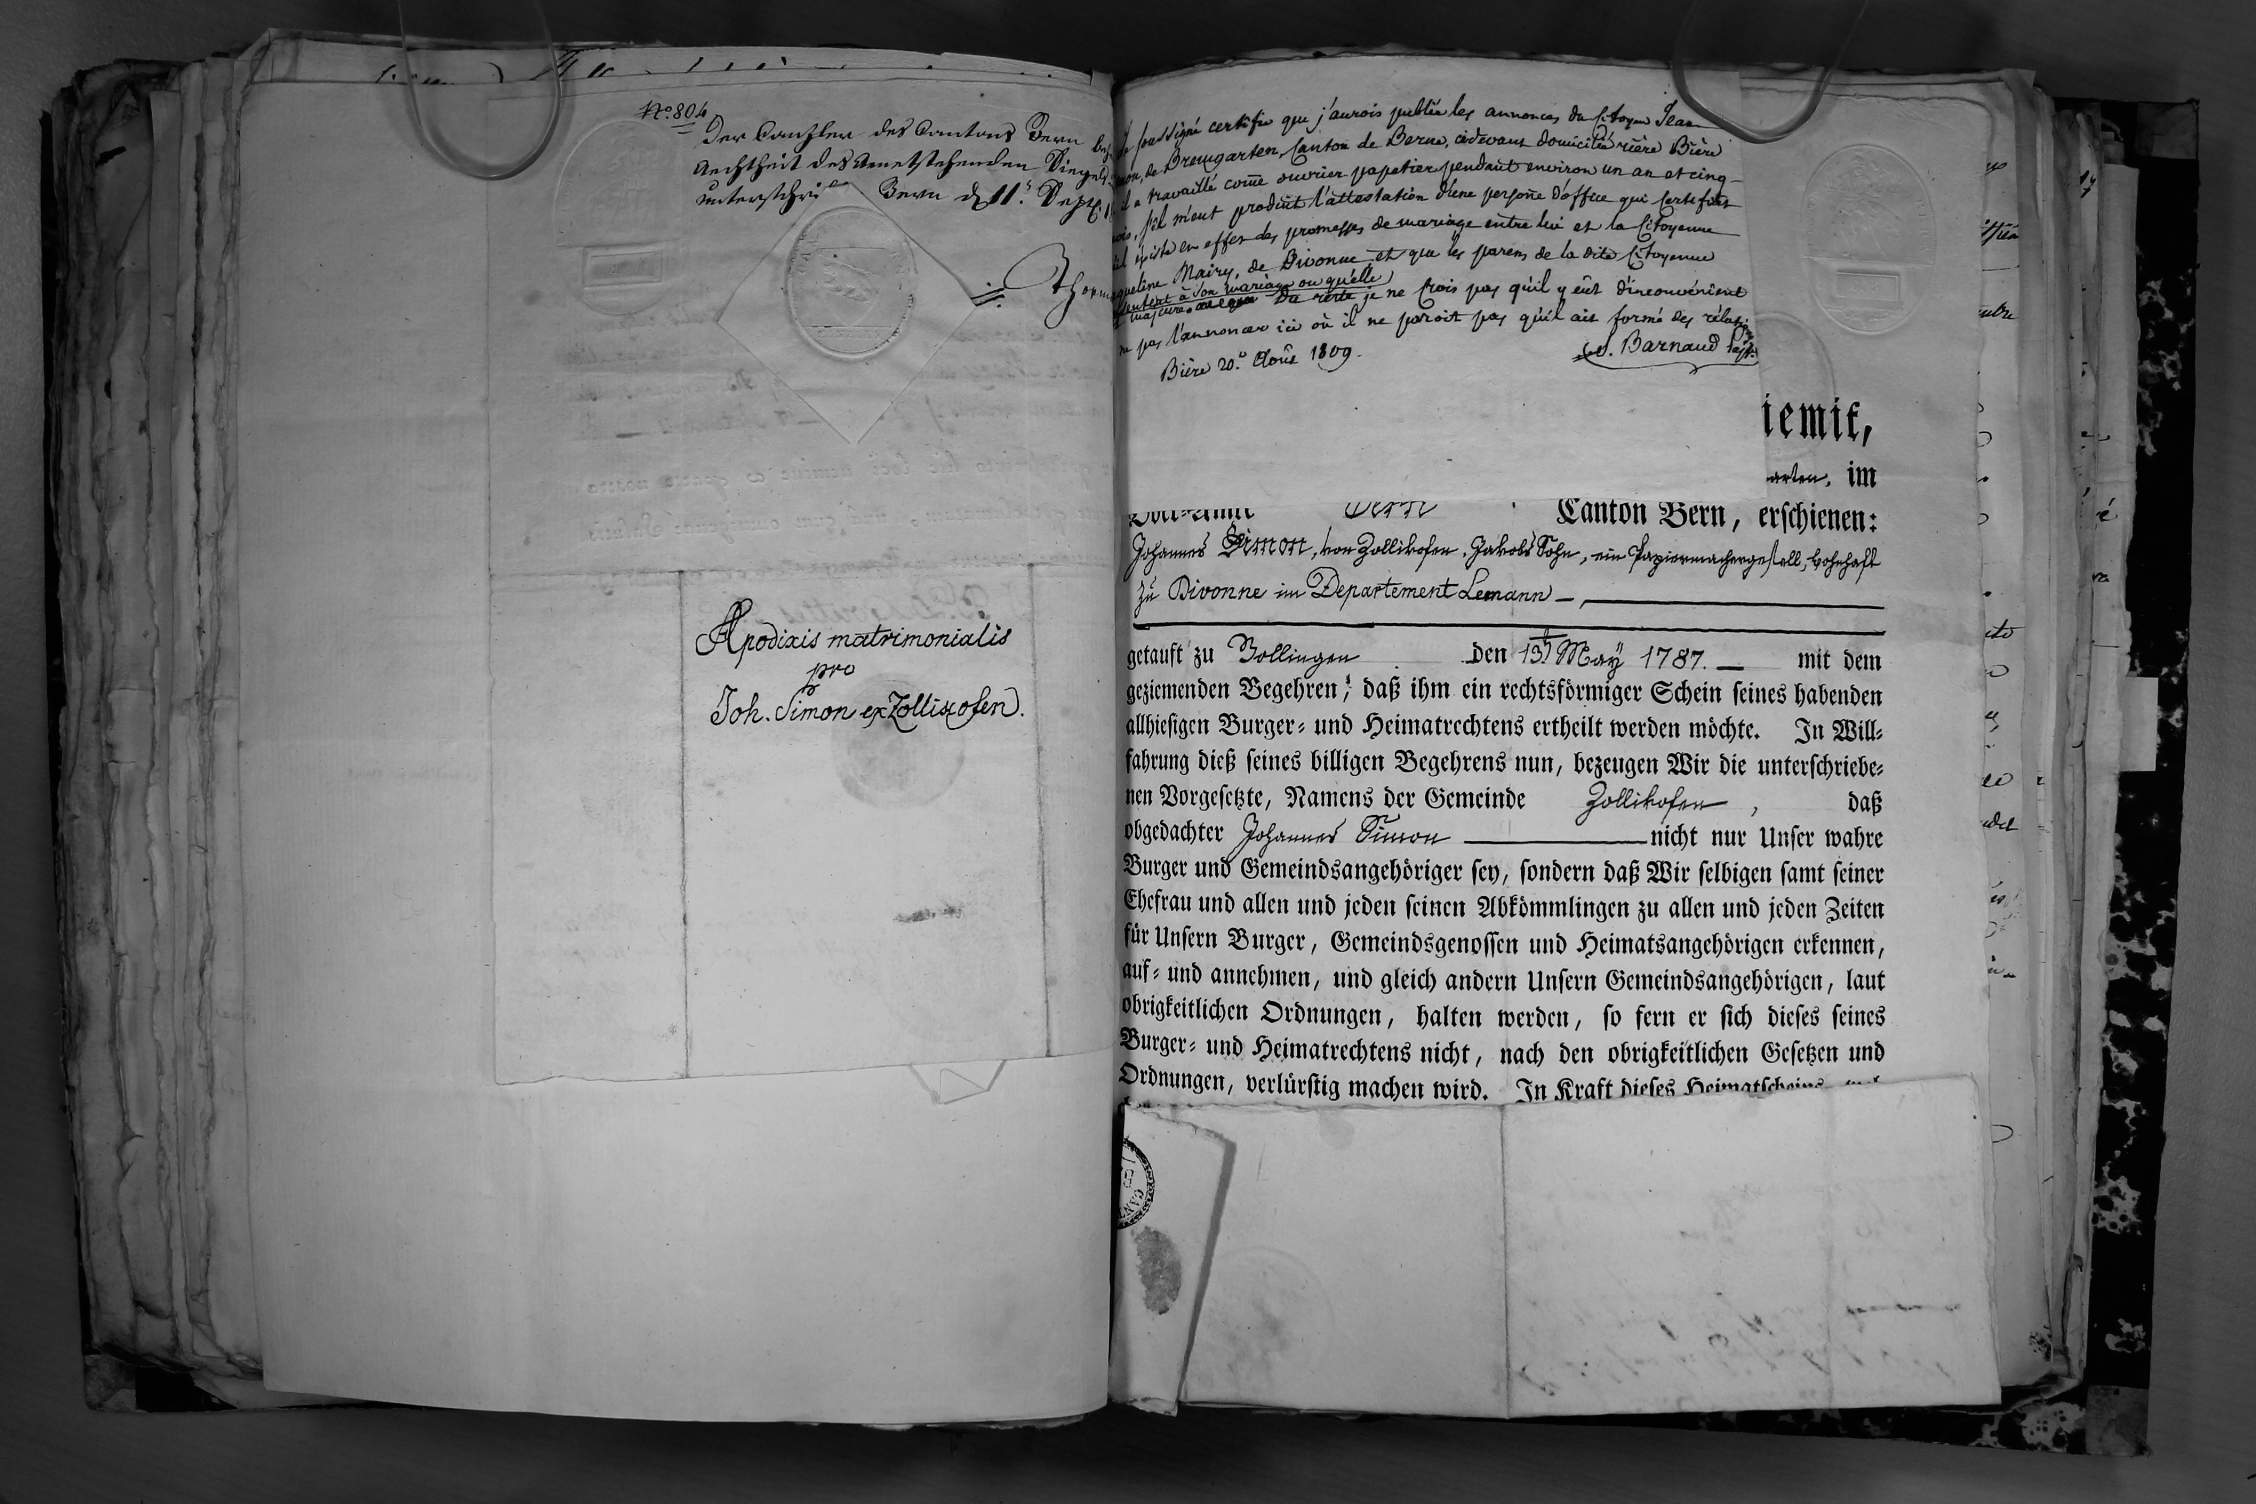 No. 804
Der Canzler des Cantons Bern
Aechtheit des Sieges
Bern d. 11. Sept.
Apodixis matrimonialis
pro
Joh. Simon ex Zollixofen.
soussigné certifie que j'aurois publié les annonces du Citoyen Jean
de Bremgarten, Canton de Berne, cidevant domicilié rière Bière
il a travaillé come ouvrier papetier pendant environ un an et cinq
s'il m'eut produit l'attestation d'une persone d'office qui certifiat
existe en effet des promesses de mariage entre lui et la Citoyenne
Mairy, de Divonne et que les parens de la dite Citoyenne
à son mariage ou qu'elle
majeure Du reste je ne crois pas qu'il y eût d'inconvénient
pas l'annoncer ici où il ne paroit pas qu'il ait formé des rélations
Bière 20.e Août 1809.
Barnaud
iemit,
arten, im
Bern
Canton Bern, erschienen:
Johannes Simon, von Zollikofen, Jakobs Sohn, ein Papiermachergesell, wohnhaft
zu Divonne im Departement Lemann —,
getauft zu Bollingen den 13 May 1787. — mit dem
geziemenden Begehren, daß ihm ein rechtsförmiger Schein seines habenden
allhiesigen Burger- und Heimatrechtens ertheilt werden möchte. In Will-
fahrung dieß seines billigen Begehrens nun, bezeugen Wir die unterschriebe-
nen Vorgesetzte, Namens der Gemeinde Zollikofen, daß
obgedachter Johannes Simon nicht nur Unser wahre
Burger und Gemeindsangehöriger sey, sondern daß Wir selbigen samt seiner
Ehefrau und allen und jeden seinen Abkömmlingen zu allen und jeden Zeiten
für Unsern Burger, Gemeindsgenossen und Heimatsangehörigen erkennen,
auf- und annehmen, und gleich andern Unsern Gemeindsangehörigen, laut
obrigkeitlichen Ordnungen, halten werden, so fern er sich dieses seines
Burger- und Heimatrechtens nicht, nach den obrigkeitlichen Gesetzen und
Ordnungen, verlürstig machen wird. In Kraft dieses Heimatscheins